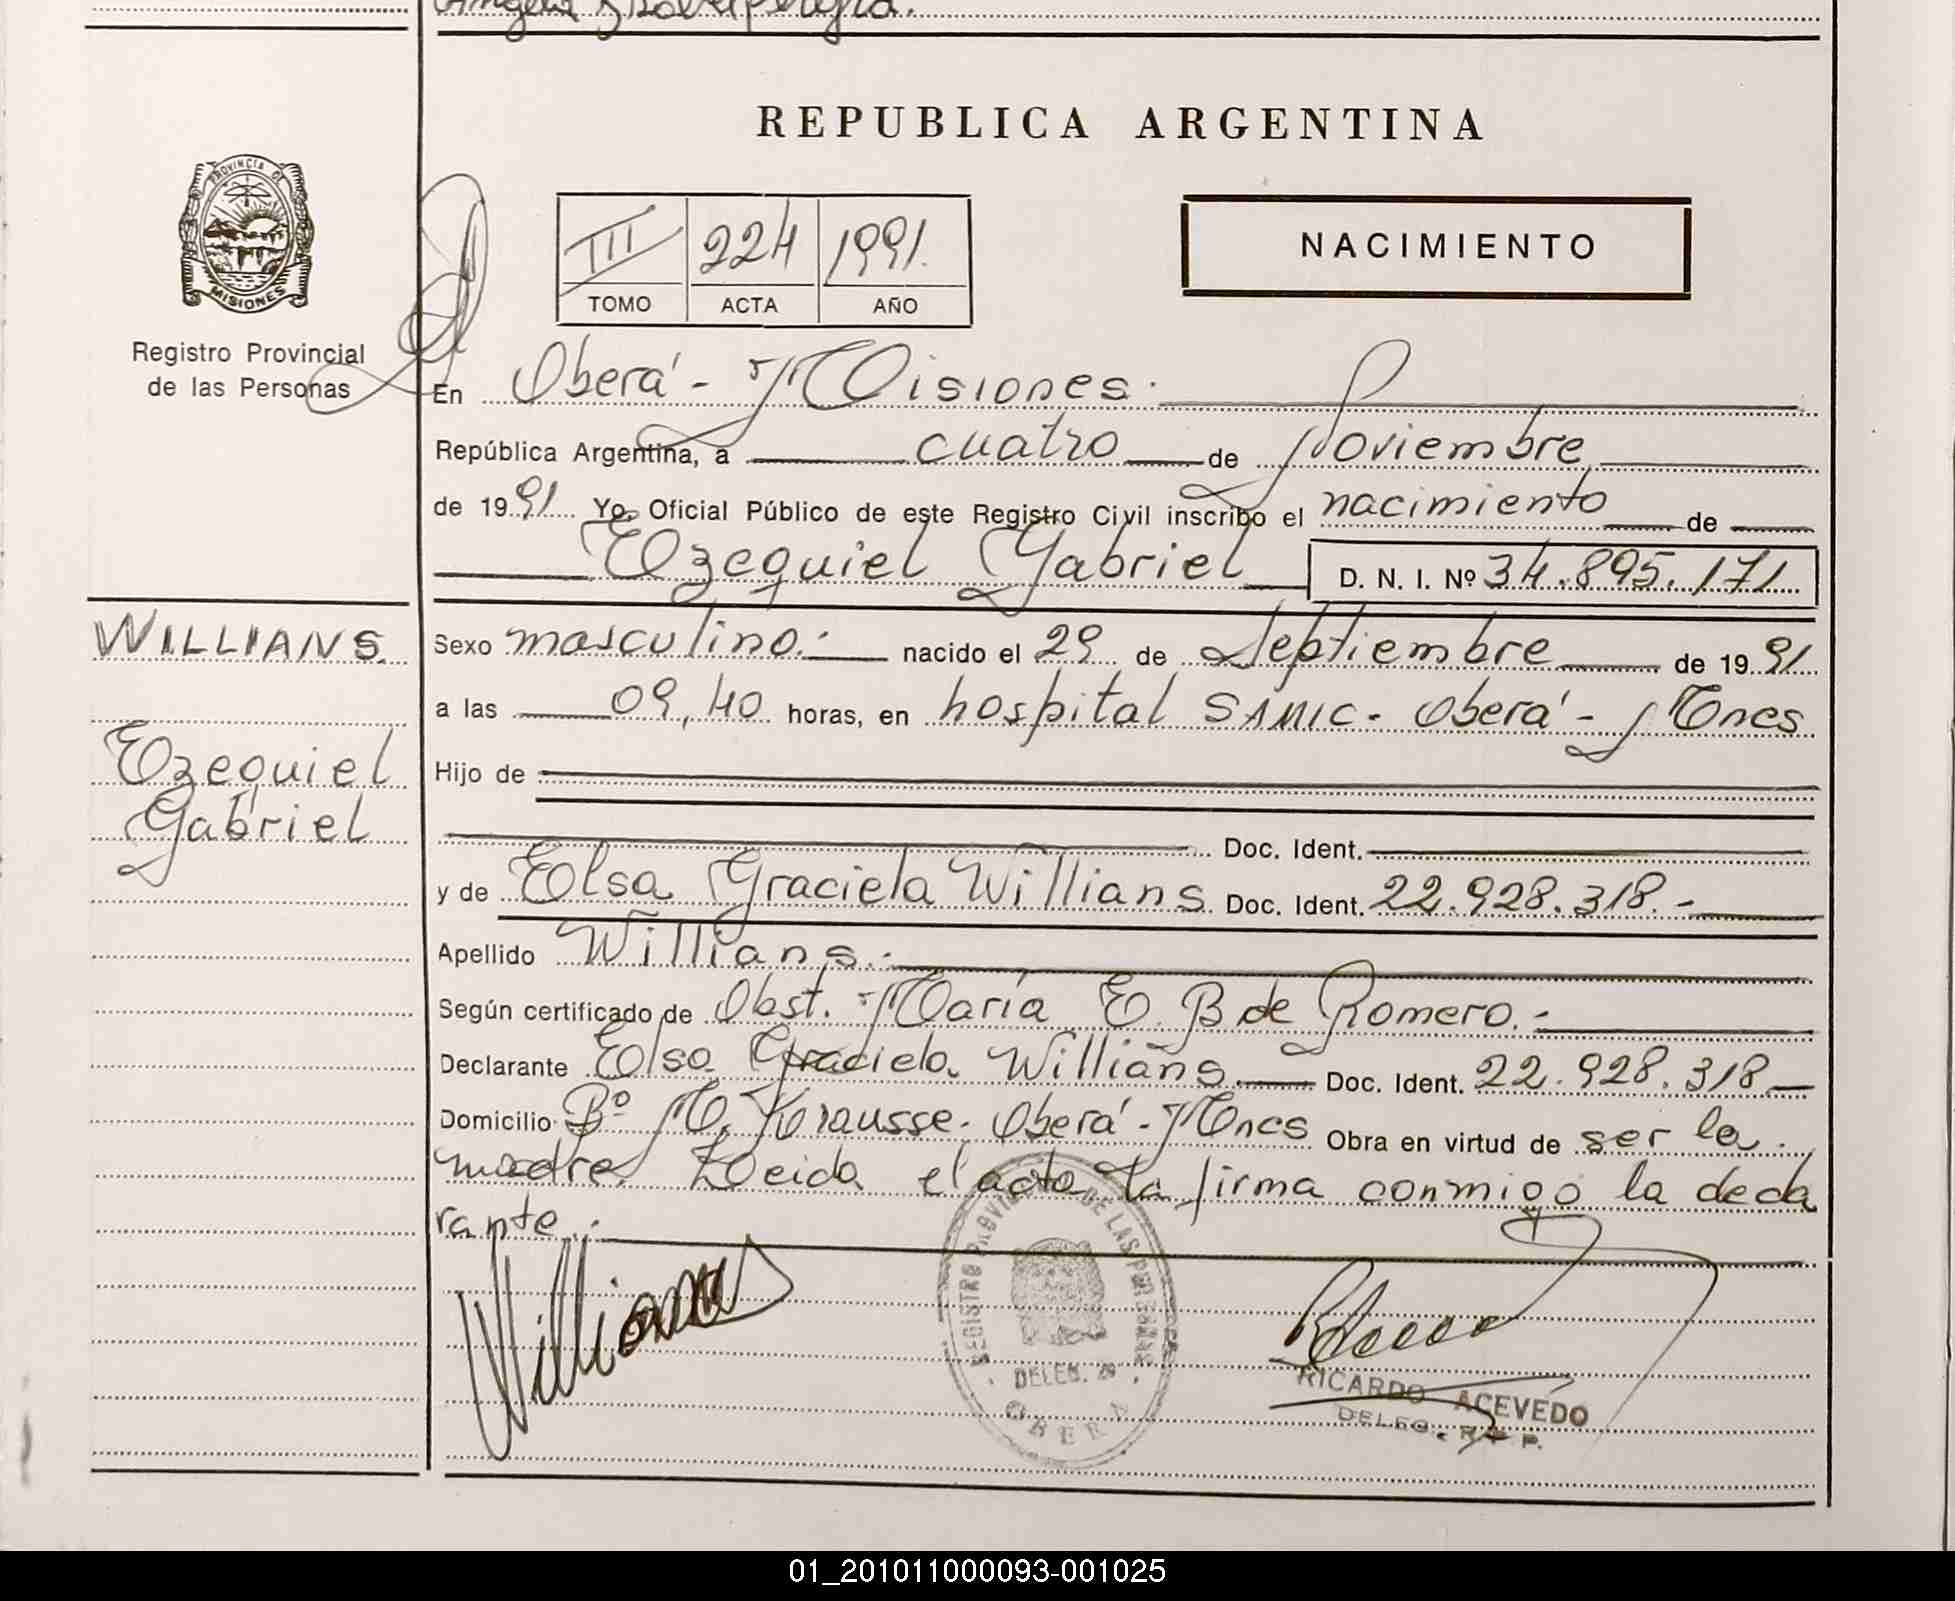 REPUBLICA ARGENTINA
PROVINCIA DE
MISIONES
Registro Provincial
de las Personas
III 224 1991.
TOMO ACTA AÑO
NACIMIENTO
En Oberá - Misiones.
República Argentina, a cuatro de Noviembre
de 1991 Yo, Oficial Público de este Registro Civil inscribo el nacimiento de
Ezequiel Gabriel D. N. I. Nº 34.895.171
WILLIANS
Ezequiel
Gabriel
Sexo masculino.- nacido el 29 de Septiembre de 1991
a las 09,40 horas, en hospital SAMIC - Oberá - Mnes
Hijo de
Doc. Ident.
y de Elsa Graciela Willians Doc. Ident. 22.928.318.-
Apellido Willians.-
Según certificado de Obst. María E. B de Romero.-
Declarante Elsa Graciela Willians Doc. Ident. 22.928.318
Domicilio Bº M. Krausse. Oberá - Mnes Obra en virtud de ser la
madre. Leida el acta la firma conmigo la decla
rante.-
Willians
REGISTRO PROVINCIAL DE LAS PERSONAS
DELEG. 29
OBERA
RICARDO ACEVEDO
DELEG. R. P. P.
01_201011000093-001025